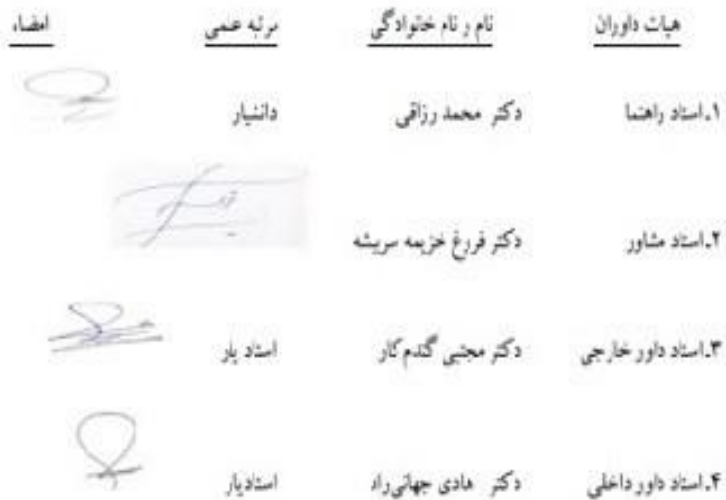 هیات داوران نام و نام خانوادگی مرتبه علمی امضاء
۱.استاد راهنما دکتر محمد رزاقی دانشیار
۲.استاد مشاور دکتر فروغ خزیمه سریشه
۳.استاد داور خارجی دکتر مجتبی گندم کار استاد یار
۴.استاد داور داخلی دکتر هادی جهانی راد استادیار